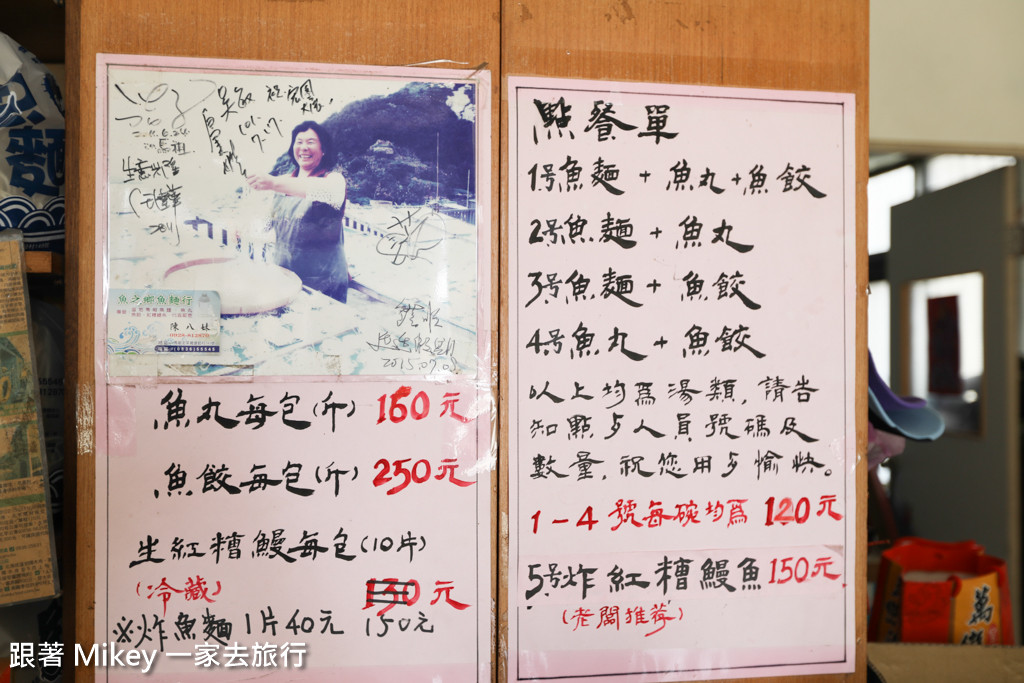 魚之鄉魚麵行
陳八妹
2015.07.0
魚丸每包(斤) 160元
魚餃每包(斤) 250元
生紅糟鰻每包(10片)
(冷藏) 130元
※炸魚麵1片40元 150元
點餐單
1号魚麵+魚丸+魚餃
2号魚麵+魚丸
3号魚麵+魚餃
4号魚丸+魚餃
以上均為湯類,請告
知點歺人員號碼及
數量,祝您用歺愉快。
1-4號每碗均為120元
5号炸紅糟鰻魚150元
(老闆推荐)
麵
萬
跟著 Mikey 一家去旅行